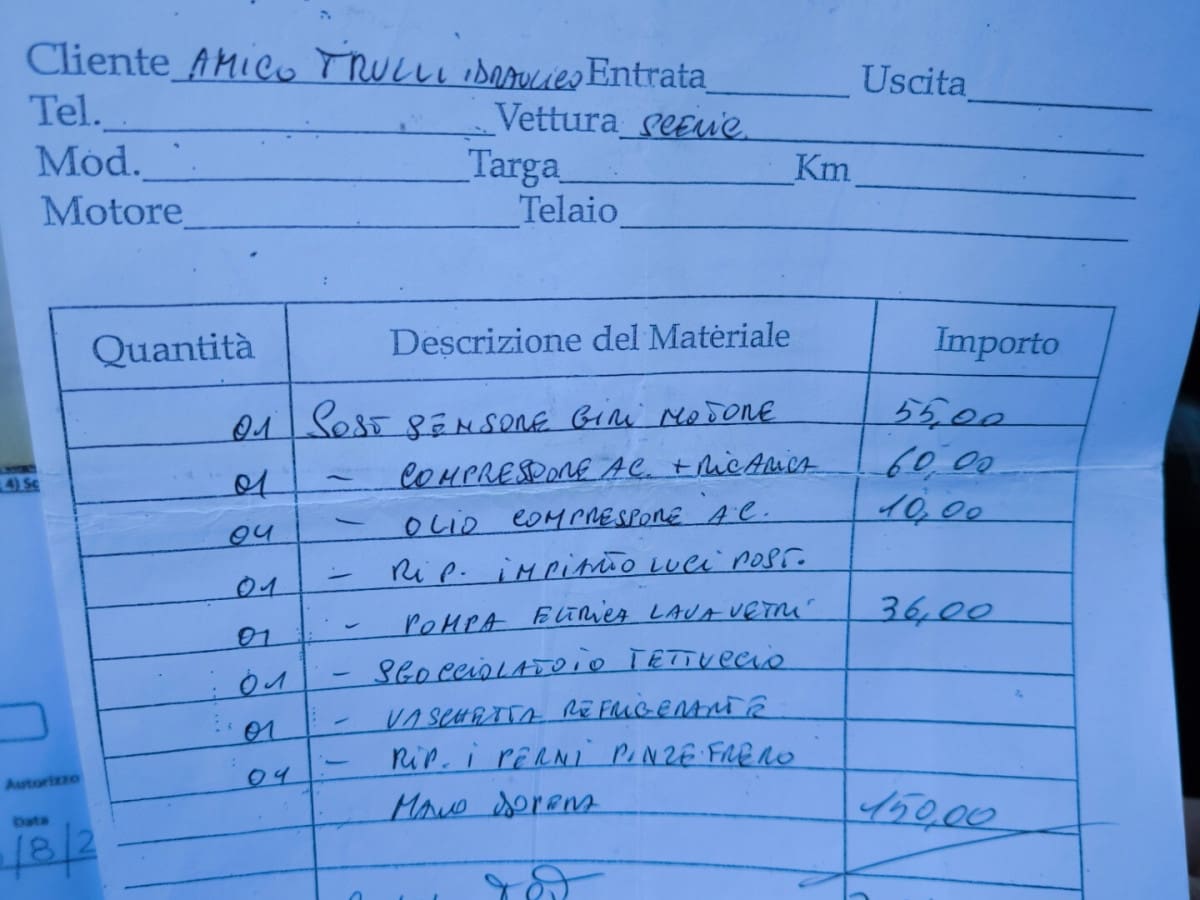 Cliente AMICO TRULLI IDRAULICO Entrata Uscita
Tel. Vettura SCENIC
Mod. Targa Km
Motore Telaio
Quantità Descrizione del Materiale Importo
01 SOST SENSORE GIRI MOTORE 55,00
01 - COMPRESSORE A.C. + RICARICA 60,00
04 - OLIO COMPRESSORE A.C. 10,00
01 - RIP. IMPIANTO LUCI POST.
01 - POMPA ELTRICA LAVAVETRI 36,00
01 - SGOCCIOLATOIO TETTUCCIO
01 - VASCHETTA REFRIGERANTE
04 - RIP. I PERNI PINZE FRENO
MANO DOPERA 150,00
4) Sc
Autorizzo
Data
/8/2